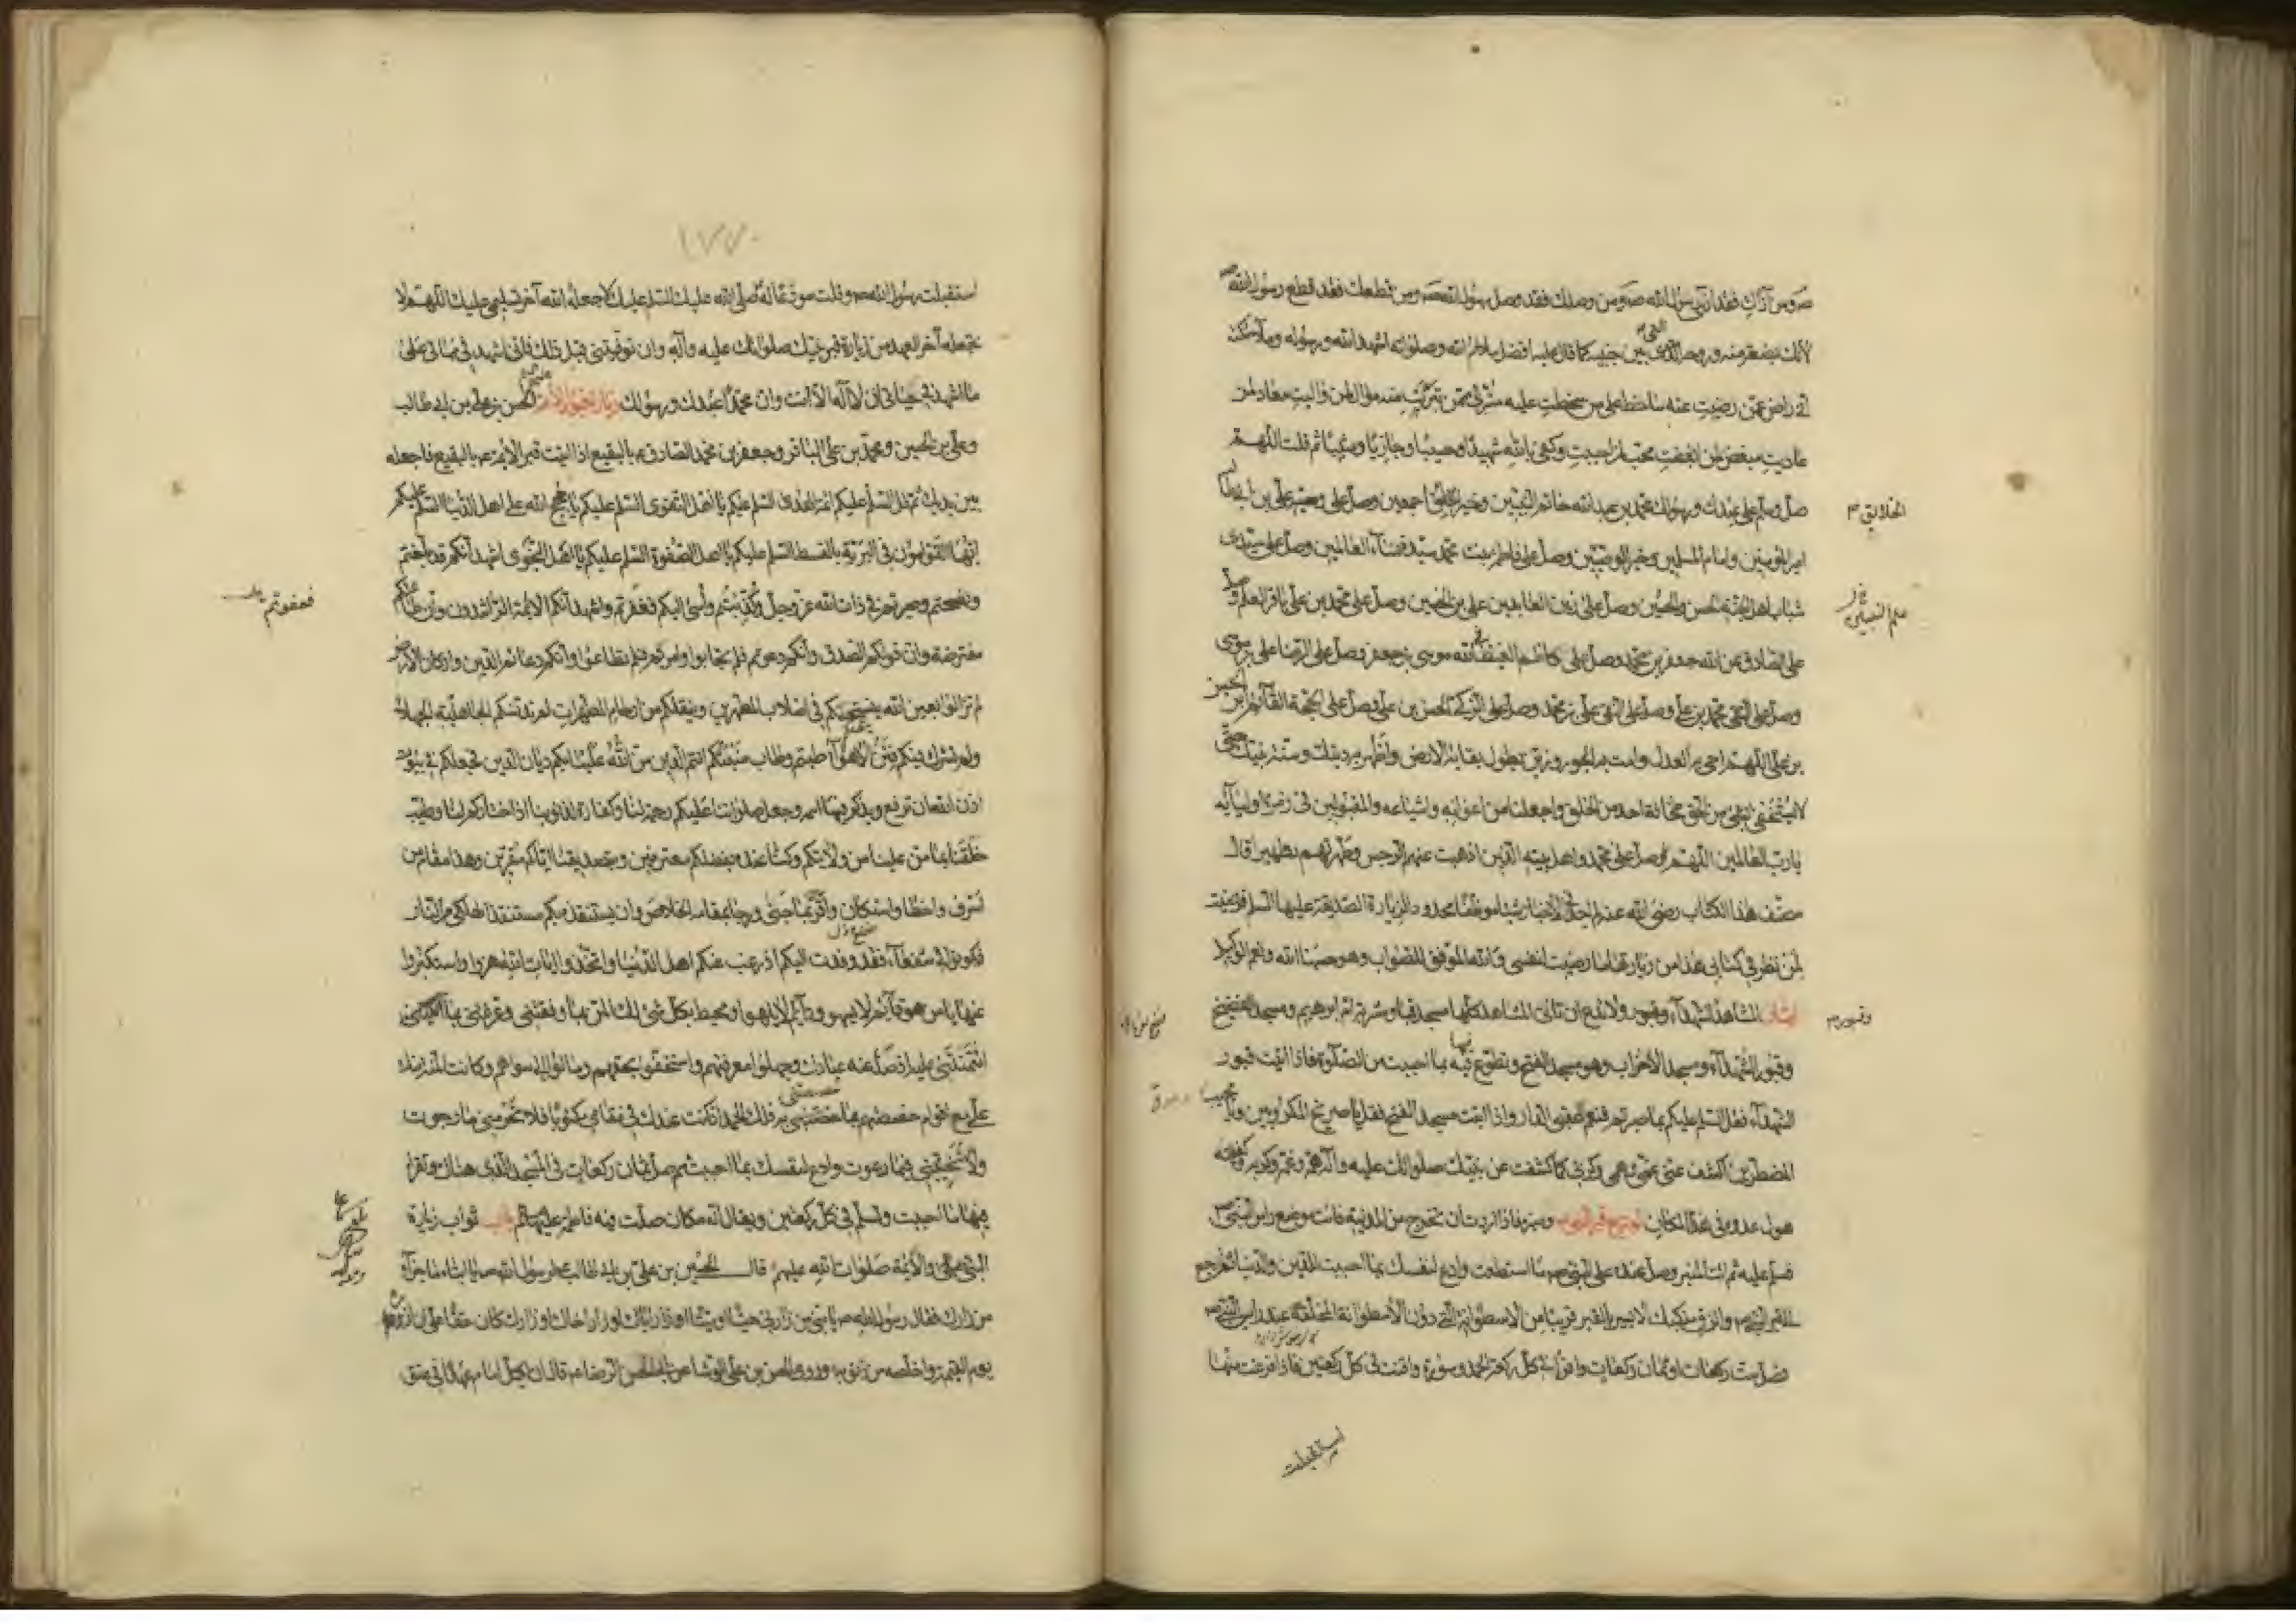 ص ومن آذاك فقد آذى رسول الله ص ومن وصلك فقد وصل رسول الله ص ومن قطعك فقد قطع رسول الله ص
لأنك بضعة منه وروحه التي بين جنبيه كما قال عليه افضل سلام الله وصلواته اشهد الله ورسوله وملائكته
اني راض عمن رضيت عنه ساخط على من سخطت عليه متبرئ ممن تبرئت منه موال لمن واليت معاد لمن
عاديت مبغض لمن ابغضت محب لمن احببت وكفى بالله شهيدا وحسيبا وجازيا ومثيبا ثم قلت اللهم
صل وسلم على عبدك ورسولك محمد بن عبد الله خاتم النبيين وخير الخلائق اجمعين وصل على وصيه علي بن ابي طالب
الخلائق
امير المؤمنين وامام المسلمين وخير الوصيين وصل على فاطمة بنت محمد سيدة نساء العالمين وصل على سيدي
شباب اهل الجنة الحسن والحسين وصل على زين العابدين علي بن الحسين وصل على محمد بن علي باقر العلم وصل
علم النبيين
على الصادق عن الله جعفر بن محمد وصل على كاظم الغيظ في الله موسى بن جعفر وصل على الرضا علي بن موسى
وصل على التقي محمد بن علي وصل على النقي علي بن محمد وصل على الزكي الحسن بن علي وصل على الحجة القائم ابن الحسن
بن علي اللهم احي به العدل وامت به الجور وزين بطول بقائه الارض واظهر به دينك وسنة نبيك حتى
لا يستخفي بشيء من الحق مخافة احد من الخلق واجعلنا من اعوانه واشياعه والمقبولين في زمرة اوليائه
يا رب العالمين اللهم صل على محمد واهل بيته الذين اذهبت عنهم الرجس وطهرتهم تطهيرا قال
مصنف هذا الكتاب رضي الله عنه لم اجد في الاخبار شيئا موظفا محدودا لزيارة الصديقة عليها السلم فرضيت
لمن نظر في كتابي هذا من زيارتها ما رضيت لنفسي والله الموفق للصواب وهو حسبنا الله ونعم الوكيل
اتيان المشاهد الشهداء وقبور ولا تدع ان تأتي المشاهد كلها مسجد قبا ومشربة ام ابرهيم ومسجد الفضيخ
وقبور
وقبور الشهداء ومسجد الاحزاب وهو مسجد الفتح وتطوع فيها بما احببت من الصلوة فاذا اتيت قبور
الشهداء فقل السلم عليكم بما صبرتم فنعم عقبى الدار واذا اتيت مسجد الفتح فقل يا صريخ المكروبين ويا مجيب
المضطرين اكشف عني غمي وهمي وكربي كما كشفت عن نبيك صلواتك عليه وآله همه وغمه وكربه وكفيته
هول عدوه في هذا المكان توديع قبر النبي ومنبره فاذا اردت ان تخرج من المدينة فات موضع راس النبي ص
فسلم عليه ثم ائت المنبر وصل عنده على النبي ص ما استطعت وادع لنفسك بما احببت للدين والدنيا ثم ارجع
الى قبر النبي ص والزق منكبك الايسر بالقبر قريبا من الاسطوانة التي دون الاسطوانة المخلقة عند راس النبي ص
فصل ست ركعات او ثمان ركعات واقرأ في كل ركعة الحمد وسورة واقنت في كل ركعتين فاذا فرغت منها
استقبلت
١٧٧
استقبلت رسول الله ص وقلت مودعا له صلى الله عليك السلم عليك لا جعله الله آخر تسليمي عليك اللهم لا
تجعله آخر العهد من زيارة قبر نبيك صلواتك عليه وآله وان توفيتني قبل ذلك فاني اشهد في مماتي على
ما اشهد في حياتي ان لا اله الا انت وان محمدا عبدك ورسولك زيارة قبور الائمة الحسن بن علي بن ابي طالب
وعلي بن الحسين ومحمد بن علي الباقر وجعفر بن محمد الصادق ع بالبقيع اذا اتيت قبر الائمة ع بالبقيع فاجعله
بين يديك ثم قل السلم عليكم ائمة الهدى السلم عليكم يا اهل التقوى السلم عليكم يا حجج الله على اهل الدنيا السلم عليكم
ايها القوامون في البرية بالقسط السلم عليكم يا اهل الصفوة السلم عليكم يا اهل النجوى اشهد انكم قد بلغتم
ونصحتم وصبرتم في ذات الله عز وجل وكذبتم واسئ اليكم فغفرتم واشهد انكم الائمة الراشدون وان طاعتكم
فعفوتم
مفترضة وان قولكم الصدق وانكم دعوتم فلم تجابوا وامرتم فلم تطاعوا وانكم دعائم الدين واركان الارض
لم تزالوا بعين الله ينسخكم في اصلاب المطهرين وينقلكم من ارحام المطهرات لم تدنسكم الجاهلية الجهلاء
ولم تشرك فيكم فتن الاهواء طبتم وطاب منبتكم انتم الذين من الله علينا بكم ديان الدين فجعلكم في بيوت
اذن الله ان ترفع ويذكر فيها اسمه وجعل صلواتنا عليكم رحمة لنا وكفارة لذنوبنا اذا اختاركم لنا وطيب
خلقنا بما من علينا من ولايتكم وكنا عنده بفضلكم معترفين وبتصديقنا اياكم مقرين وهذا مقام من
اسرف واخطا واستكان واقر بما جنى ورجا بمقامه الخلاص وان يستنقذه بكم مستنقذ الهلكى من النار
فكونوا لي شفعاء فقد وفدت اليكم اذ رغب عنكم اهل الدنيا واتخذوا ايات الله هزوا واستكبروا
عنها يا من هو قائم لا يسهو ودائم لا يلهو ومحيط بكل شئ لك المن بما وفقتني وعرفتني بما
ائتمنتني عليه اذ صد عنه عبادك وجهلوا معرفتهم واستخفوا بحقهم ومالوا الى سواهم وكانت المنة منك
علي مع اقوام خصصتهم بما خصصتني به فلك الحمد اذ كنت عندك في مقامي مكتوبا فلا تحرمني ما رجوت
ولا تخيبني فيما دعوت وادع لنفسك بما احببت ثم صل ثمان ركعات في المسجد الذي هناك وتقرا
فيها ما احببت وتسلم في كل ركعتين ويقال انه مكان صلت فيه فاطمة عليها السلم باب ثواب زيارة
النبي ص والائمة صلوات الله عليهم قال الحسين بن علي بن ابي طالب ع لرسول الله ص يا ابتاه ما جزاء
من زارك فقال رسول الله ص يا بني من زارني حيا او ميتا او زار اباك او زار اخاك او زارك كان حقا علي ان ازوره
يوم القيمة واخلصه من ذنوبه وروى الحسن بن علي الوشا عن ابي الحسن الرضا ع قال ان لكل امام عهدا في عنق